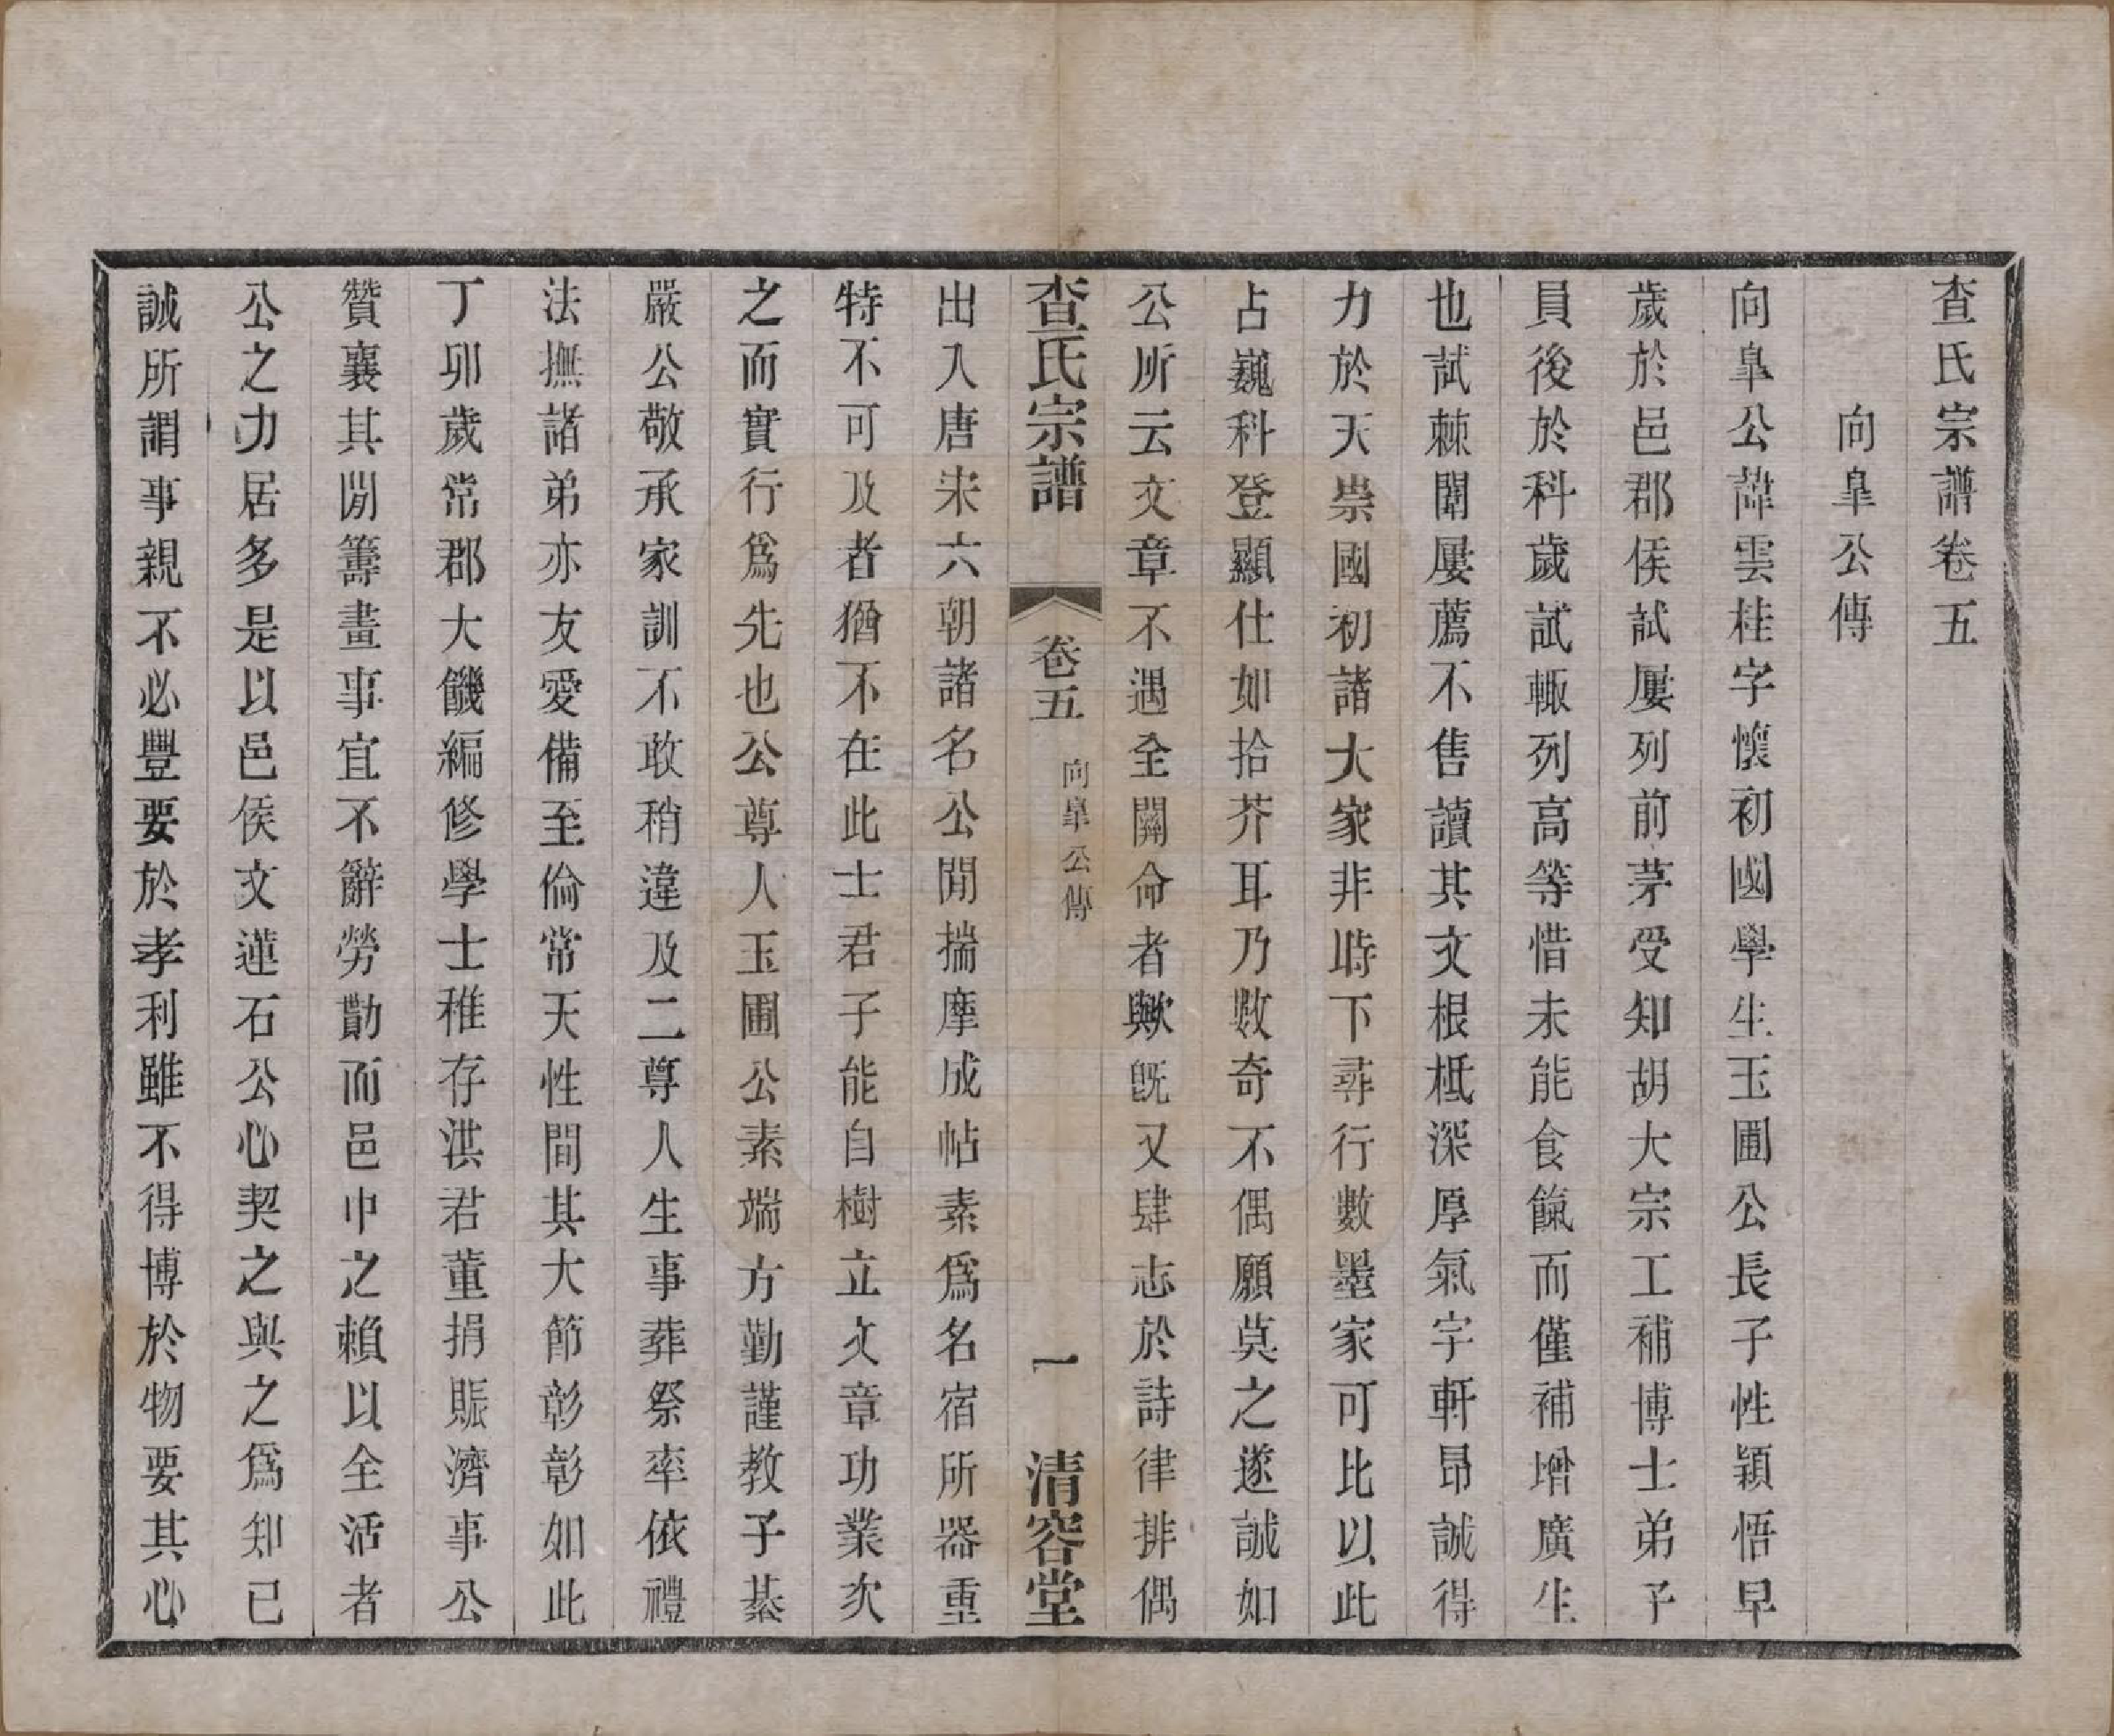 查氏宗譜卷五
向臯公傳
向臯公諱雲桂字懷初國學生玉圃公長子性穎悟早
歲於邑郡侯試屢列前茅受知胡大宗工補博士弟子
員後於科歲試輒列高等惜未能食餼而僅補增廣生
也試棘闈屢薦不售讀其文根柢深厚氣宇軒昂誠得
力於天崇國初諸大家非時下尋行數墨家可比以此
占巍科登顯仕如拾芥耳乃數奇不偶願莫之遂誠如
公所云文章不遇全關命者歟旣又肆志於詩律排偶
查氏宗譜
卷五
向臯公傳
一
清容堂
出入唐宋六朝諸名公閒揣摩成帖素爲名宿所器重
特不可及者猶不在此士君子能自樹立文章功業次
之而實行爲先也公尊人玉圃公素端方勤謹教子綦
嚴公敬承家訓不敢稍違及二尊人生事葬祭率依禮
法撫諸弟亦友愛備至倫常天性間其大節彰彰如此
丁卯歲常郡大饑編修學士稚存洪君董捐賑濟事公
贊襄其閒籌畫事宜不辭勞勩而邑中之賴以全活者
公之力居多是以邑侯文蓮石公心契之與之爲知己
誠所謂事親不必豐要於孝利雖不得博於物要其心